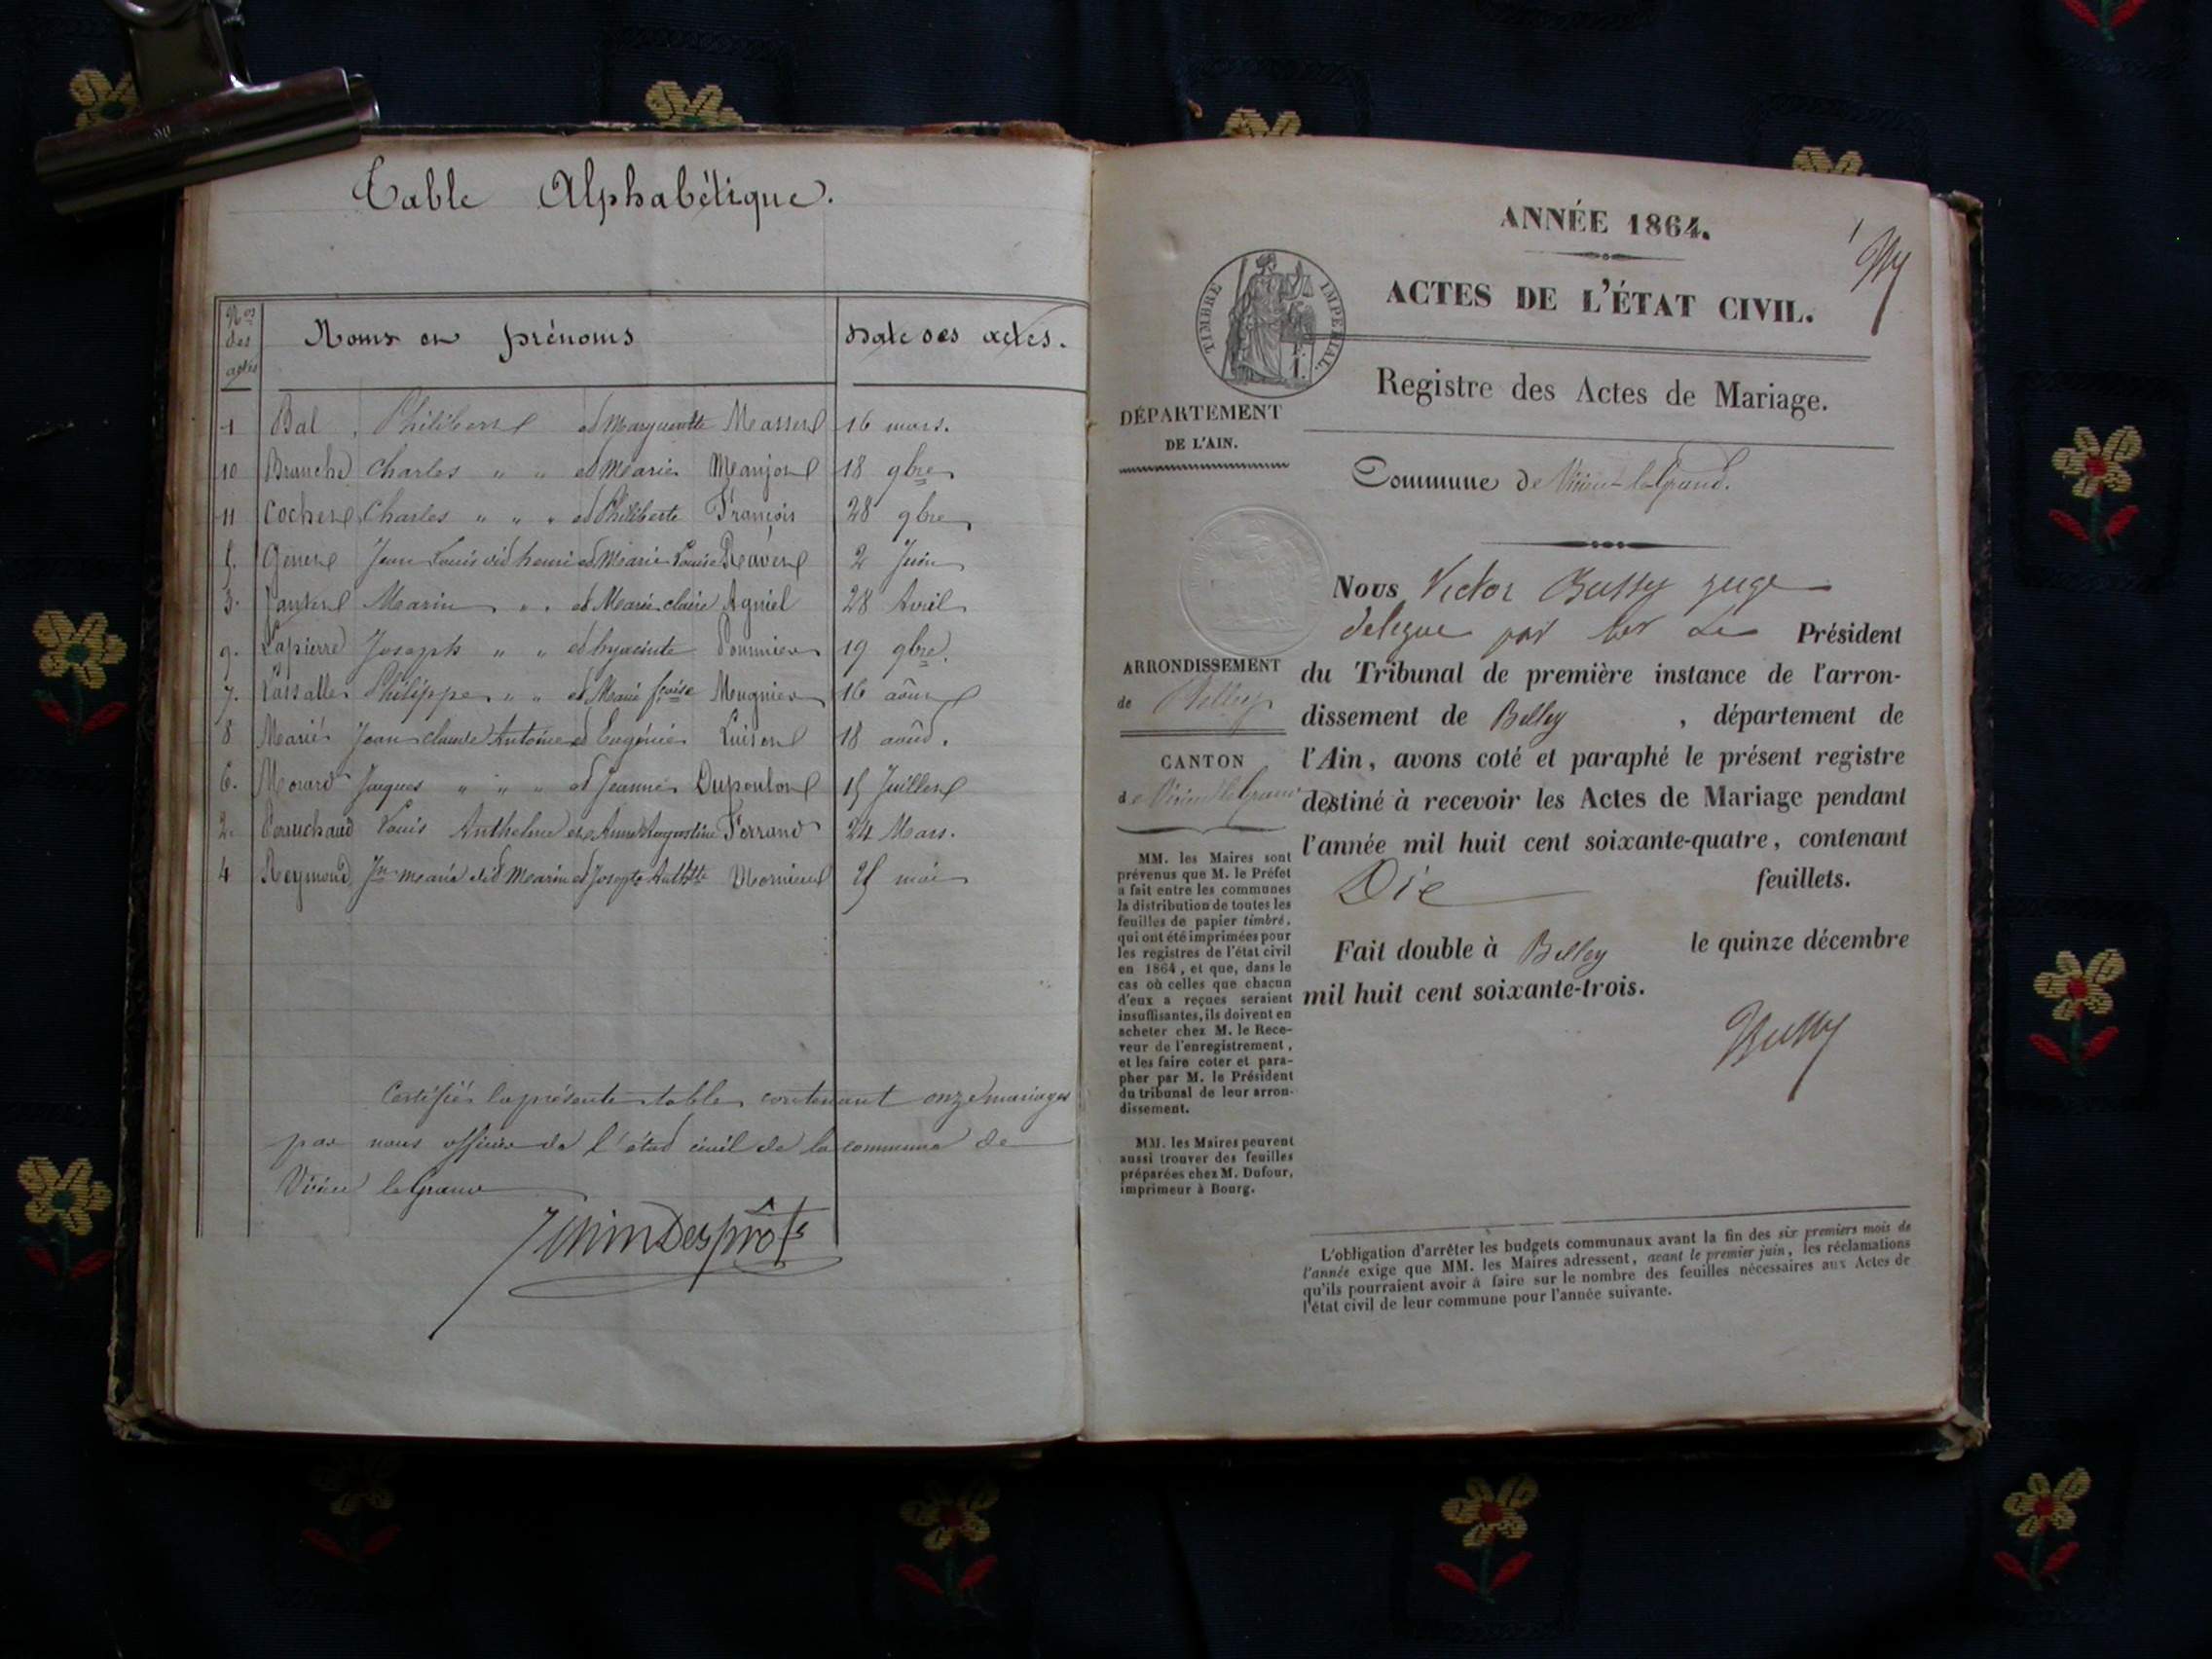 Table Alphabétique.
Nos des actes
Noms et prénoms
Date des actes.
1 Bal Philibert et Marguerite Massert 16 mars.
10 Branche Charles " " et Marie Manjot 18 9bre
11 Cochet Charles " " " et Philiberte François 28 9bre
5. Genet Jean Louis dit henri et Marie Louise Ravet 2 Juin
3. Marin " " et Marie claire Agniel 28 Avril
9. Lapierre Joseph " " et hyacinte Pommier 19 9bre.
7. Lassalle Philippe " " et Marie fçoise Mugnier 16 août
8 Marié Jean claude Antoine et Eugénie Luiset 18 août.
6. Morard Jacques " " " et Jeanne Dupoulot 15 Juillet
2. Louis Anthelme et Anne Augustine Ferrand 24 Mars.
4 Reymond Jn marie dit Marin et Josepte Mornieux 25 mai
Certifié la présente table contenant onze mariages
par nous officier de l'état civil de la commune de
Virieu le Grand
ANNÉE 1864.
1
TIMBRE IMPÉRIAL.
ACTES DE L'ÉTAT CIVIL.
Registre des Actes de Mariage.
DÉPARTEMENT
DE L'AIN.
Commune de Virieu-le-Grand.
ARRONDISSEMENT
de Belley
CANTON
de Virieu le Grand
MM. les Maires sont
prévenus que M. le Préfet
a fait entre les communes
la distribution de toutes les
feuilles de papier timbré,
qui ont été imprimées pour
les registres de l'état civil
en 1864, et que, dans le
cas où celles que chacun
d'eux a reçues seraient
insuffisantes, ils doivent en
acheter chez M. le Rece-
veur de l'enregistrement,
et les faire coter et para-
pher par M. le Président
du tribunal de leur arron-
dissement.
MM. les Maires peuvent
aussi trouver des feuilles
préparées chez M. Dufour,
imprimeur à Bourg.
Nous Victor Bussy juge
délégué par Président
du Tribunal de première instance de l'arron-
dissement de Belley, département de
l'Ain, avons coté et paraphé le présent registre
destiné à recevoir les Actes de Mariage pendant
l'année mil huit cent soixante-quatre, contenant
Dix feuillets.
Fait double à Belley le quinze décembre
mil huit cent soixante-trois.
Bussy
L'obligation d'arrêter les budgets communaux avant la fin des six premiers mois de
l'année exige que MM. les Maires adressent, avant le premier juin, les réclamations
qu'ils pourraient avoir à faire sur le nombre des feuilles nécessaires aux Actes de
l'état civil de leur commune pour l'année suivante.